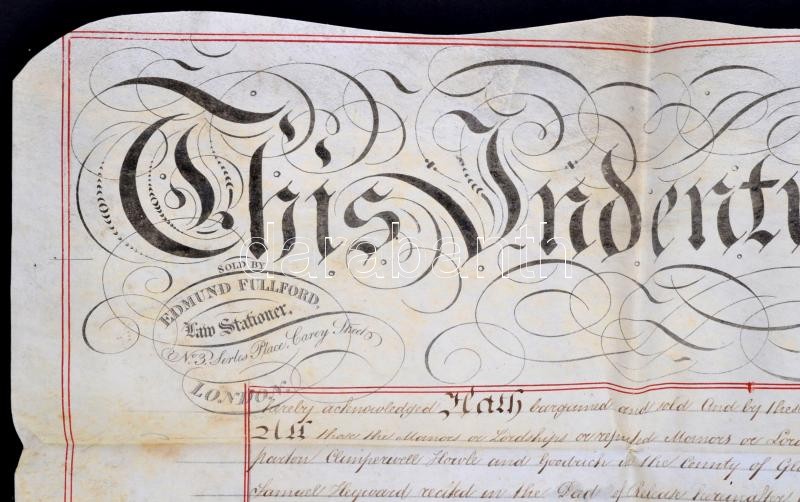 This Indentu
SOLD BY
EDMUND FULLFORD,
Law Stationer,
No. 3. Serles Place, Carey Street
LONDON.
darabanth
hereby acknowledged Hath bargained and sold And by these
All those the Manors or Lordships or reputed Manors or Lord
and Goodrich in the County of
Samuel Heyward recited in the Deed of Release hereinafter